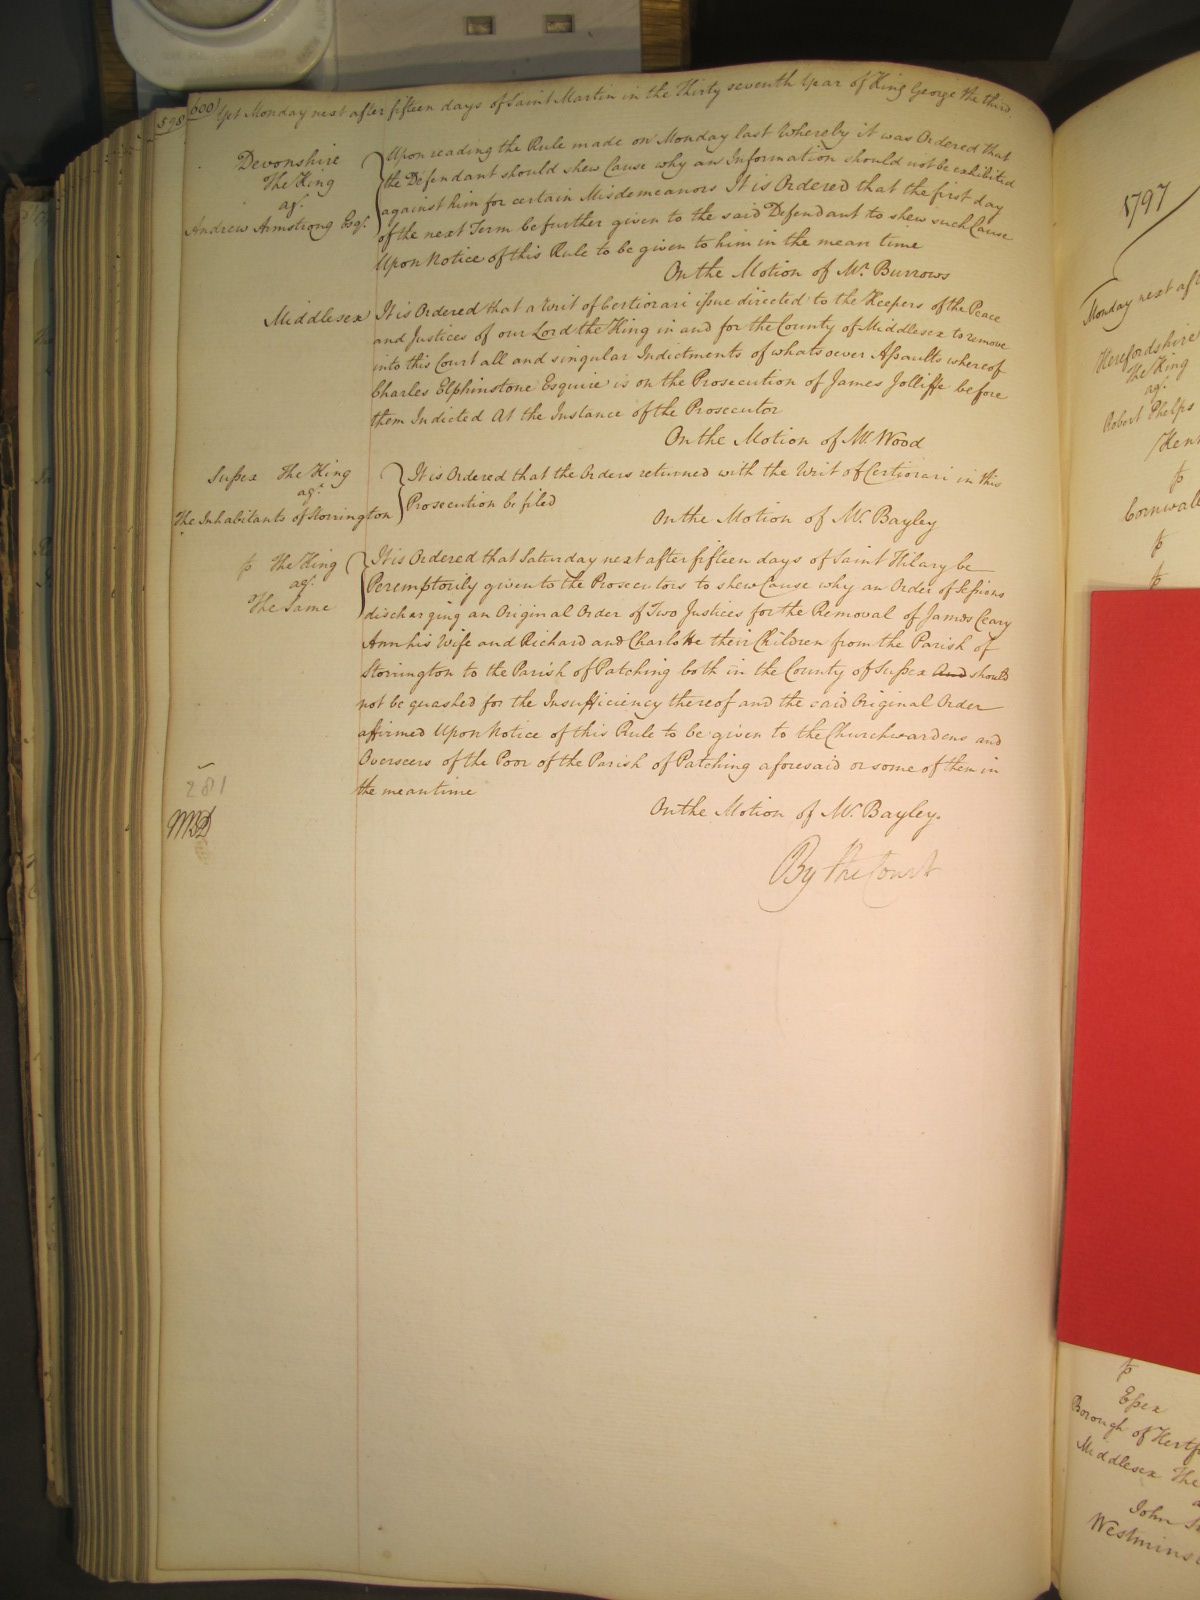 598
600
Yet Monday next after fifteen days of Saint Martin in the Thirty seventh Year of King George the third.
Devonshire
The King
agt.
Andrew Armstrong Esqr.
Upon reading the Rule made on Monday last Whereby it was Ordered that
the Defendant should shew Cause why an Information should not be exhibited
against him for certain Misdemeanors It is Ordered that the first day
of the next Term be further given to the said Defendant to shew such Cause
Upon Notice of this Rule to be given to him in the mean time
On the Motion of Mr. Burrows
Middlesex
It is Ordered that a Writ of Certiorari issue directed to the Keepers of the Peace
and Justices of our Lord the King in and for the County of Middlesex to remove
into this Court all and singular Indictments of whatsoever Assaults whereof
Charles Elphinstone Esquire is on the Prosecution of James Jolliffe before
them Indicted At the Instance of the Prosecutor
On the Motion of Mr. Wood
Sussex The King
agt.
The Inhabitants of Storrington
It is Ordered that the Orders returned with the Writ of Certiorari in this
Prosecution be filed
On the Motion of Mr. Bayley
The King
agt.
The Same
It is Ordered that Saturday next after fifteen days of Saint Hilary be
Peremptorily given to the Prosecutors to shew Cause why an Order of Sessions
discharging an Original Order of Two Justices for the Removal of James Ceary
Ann his Wife and Richard and Charlotte their Children from the Parish of
Storrington to the Parish of Patching both in the County of Sussex And should
not be quashed for the Insufficiency thereof and the said Original Order
affirmed Upon Notice of this Rule to be given to the Churchwardens and
Overseers of the Poor of the Parish of Patching aforesaid or some of them in
the mean time
281
On the Motion of Mr. Bayley.
By the Court
1797
Monday next aft
Herefordshire
The King
agt.
Robert Phelps
Kent
Cornwall
Essex
Borough of Hertf
Middlesex The
John
Westmins